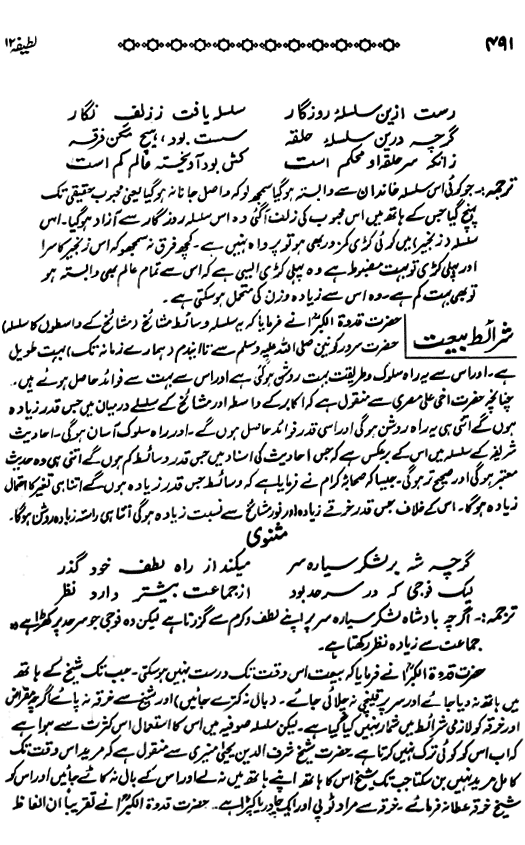 ۴۹۱ لطیفہ ۱۲
رست ازین سلسلۂ روزگار سلسلہ یافت ز زلف نگار
گرچہ درین سلسلۂ حلقہ سست بود، ہیچ مکن فرقہ
زانکہ سر حلقہ او محکم است کش بود آویختہ عالم کم است
ترجمہ:۔ جو کوئی اس سلسلہ خاندان سے وابستہ ہو گیا سمجھ لو کہ واصل جانانہ ہو گیا یعنی محبوب حقیقی تک
پہنچ گیا جس کے ہاتھ میں اس محبوب کی زلف آ گئی وہ اس سلسلہ روزگار سے آزاد ہو گیا۔ اس
سلسلہ (زنجیر) میں کوئی کڑی کمزور بھی ہو تو پرواہ نہیں ہے۔ کچھ فرق نہ سمجھو کہ اس زنجیر کا سرا
اور پہلی کڑی تو بہت مضبوط ہے وہ پہلی کڑی ایسی ہے کہ اس سے تمام عالم بھی وابستہ ہو
تو بھی بہت کم ہے۔ وہ اس سے زیادہ وزن کی متحمل ہو سکتی ہے۔
شرائط بیعت حضرت قدوۃ الکبرٰؒی نے فرمایا کہ یہ سلسلہ وسائط مشائخ (مشائخ کے واسطوں کا سلسلہ)
حضرت سرور کونین صلی اللہ علیہ وسلم سے تا ایندم (ہمارے زمانہ تک) بہت طویل
ہے۔ اور اس سے یہ راہ سلوک و طریقت بہت روشن ہو گئی ہے اور اس سے بہت سے فوائد حاصل ہوئے ہیں۔
چنانچہ حضرت اخی علی مصری سے منقول ہے کہ اکابر کے واسطہ اور مشائخ کے سلسلے درمیان میں جس قدر زیادہ
ہوں گے اتنی ہی یہ راہ روشن ہو گی اور اسی قدر فوائد حاصل ہوں گے۔ اور راہ سلوک آسان ہو گی۔ احادیث
شریفہ کے سلسلہ میں اس کے برعکس ہے کہ جس احادیث کی اسناد میں جس قدر وسائط کم ہوں گے اتنی ہی وہ حدیث
معتبر ہو گی اور صحیح تر ہو گی۔ جیسا کہ صحابۂ کرام نے فرمایا ہے کہ وسائط جس قدر زیادہ ہوں گے اتنا ہی تغیر کا احتمال
زیادہ ہو گا۔ اس کے خلاف جس قدر خرقے زیادہ اور نور مشائخ سے نسبت زیادہ ہو گی اتنا ہی راستہ زیادہ روشن ہو گا۔
مثنوی
گرچہ شہ بر لشکر سیارہ سر میکند از راہ لطف خود گذر
لیک فوجی کہ در سرحد بود از جماعت بیشتر دارد نظر
ترجمہ:۔ اگرچہ بادشاہ لشکر سیارہ سر پر اپنے لطف و کرم سے گزرتا ہے لیکن وہ فوجی جو سرحد پر کھڑا ہے وہ
جماعت سے زیادہ نظر رکھتا ہے۔
حضرت قدوۃ الکبرٰؒی نے فرمایا کہ بیعت اس وقت تک درست نہیں ہو سکتی۔ جب تک شیخ کے ہاتھ
میں ہاتھ نہ دیا جائے اور سر پر قینچی نہ چلائی جائے۔ (بال نہ کترے جائیں) اور شیخ سے خرقہ نہ پائے اگرچہ مقراض
اور خرقہ کو لازمی شرائط میں شمار نہیں کیا گیا ہے۔ لیکن سلسلہ صوفیہ میں اس کا استعمال اس کثرت سے ہوا ہے
کہ اب اس کو کوئی ترک نہیں کرتا ہے۔ حضرت شیخ شرف الدین یحیٰی منیری سے منقول ہے کہ مرید اس وقت تک
کامل مرید نہیں بن سکتا جب تک شیخ اس کا ہاتھ اپنے ہاتھ میں نہ لے اور اس کے بال نہ کاٹے جائیں اور اس کو
شیخ خرقہ عطا نہ فرمائے۔ خرقہ سے مراد ٹوپی اور ایک چادر یا کپڑا ہے۔ حضرت قدوۃ الکبرٰؒی نے تقریباً ان الفاظ